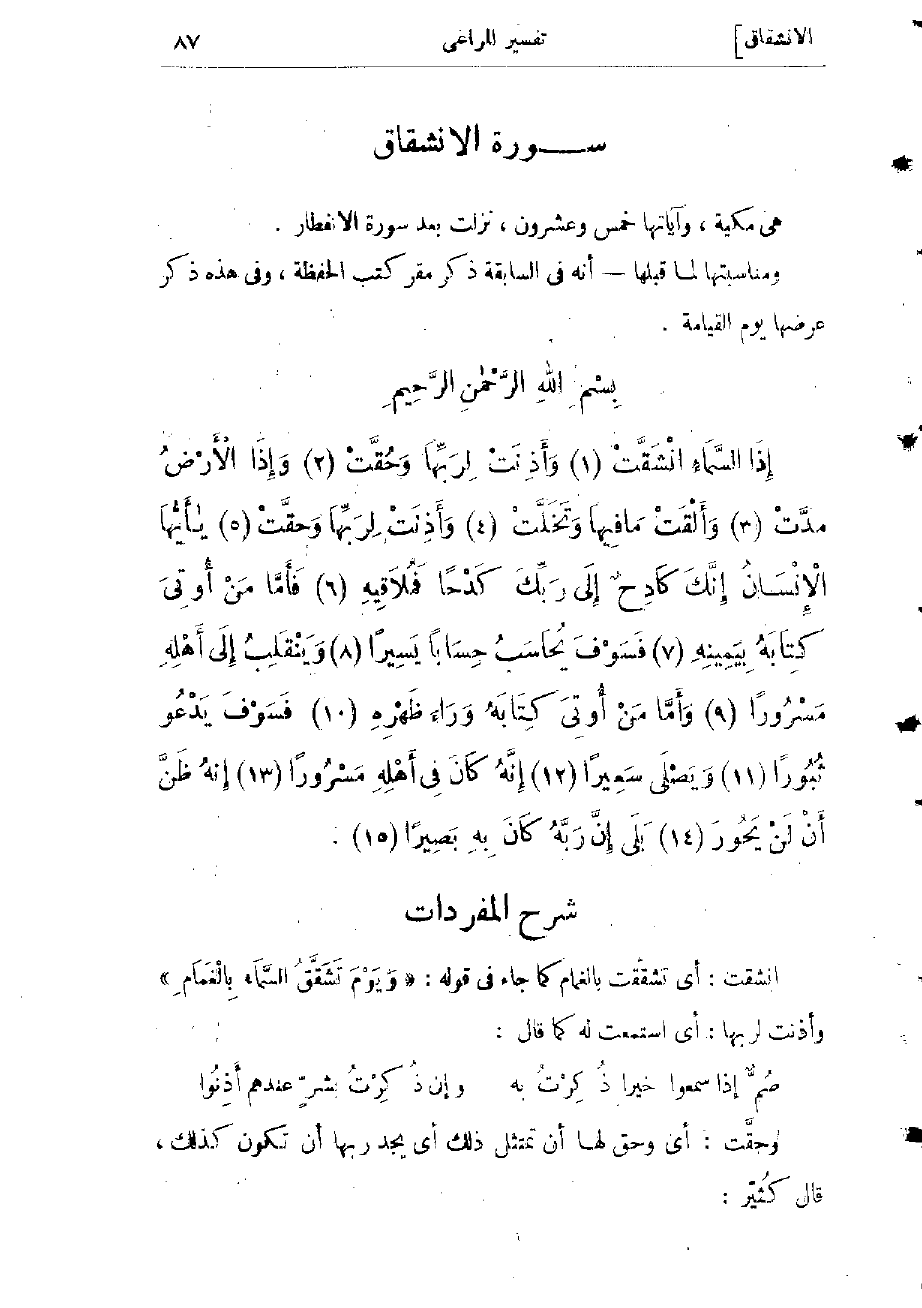 الانشقاق]
تفسير المراغى
٨٧
ســـورة الانشقاق
هى مكية ، وآياتها خمس وعشرون ، نزلت بعد سورة الانفطار .
ومناسبتها لما قبلها — أنه فى السابقة ذكر مقر كتب الحفظة ، وفى هذه ذكر
عرضها يوم القيامة .
بِسْمِ اللهِ الرَّحْمٰنِ الرَّحِيمِ
إِذَا السَّمَاءِ انْشَقَّتْ (١) وَأَذِنَتْ لِرَبِّهَا وَحُقَّتْ (٢) وَإِذَا الْأَرْضُ
مدَّتْ (٣) وَأَلْقَتْ مَافِيهَا وَتَخَلَّتْ (٤) وَأَذِنَتْ لِرَبِّهَا وَحقَّتْ (٥) يٰأَيُّهَا
الْإِنْسَانُ إِنَّكَ كَادِحٌ إِلَى رَبِّكَ كَدْحًا فَمُلَاقِيهِ (٦) فَأَمَّا مَنْ أُوتِىَ
كِتَابَهُ بِيَمِينِهِ (٧) فَسَوْفَ يُحَاسَبُ حِسَاباً يَسِيرًا (٨) وَيَنْقَلِبُ إِلَى أَهْلِهِ
مَسْرُورًا (٩) وَأَمَّا مَنْ أُوتِىَ كِتَابَهُ وَرَاءَ ظَهْرِهِ (١٠) فَسَوْفَ يَدْعُو
ثُبُورًا (١١) وَيَصْلَى سَعِيرًا (١٢) إِنَّهُ كَانَ فِى أَهْلِهِ مَسْرُورًا (١٣) إِنهُ ظَنَّ
أَنْ لَنْ يَحُورَ (١٤) بَلَى إِنَّ رَبَّهُ كَانَ بِهِ بَصِيرًا (١٥) .
شرح المفردات
انشقت : أى تشقّقت بالغمام كما جاء فى قوله : « وَيَوْمَ تَشَقَّقُ السَّمَاءُ بِالْغَمَامِ »
وأذنت لربها : أى استمعت له كما قال :
صُمٌّ إذا سمعوا خيرا ذُكِرْتُ به وإن ذُكِرْتُ بشرٍّ عندهم أَذِنُوا
وحقَّت : أى وحق لها أن تمتثل ذلك أى يجد ربها أن تكون كذلك ،
قال كُثَيّر :